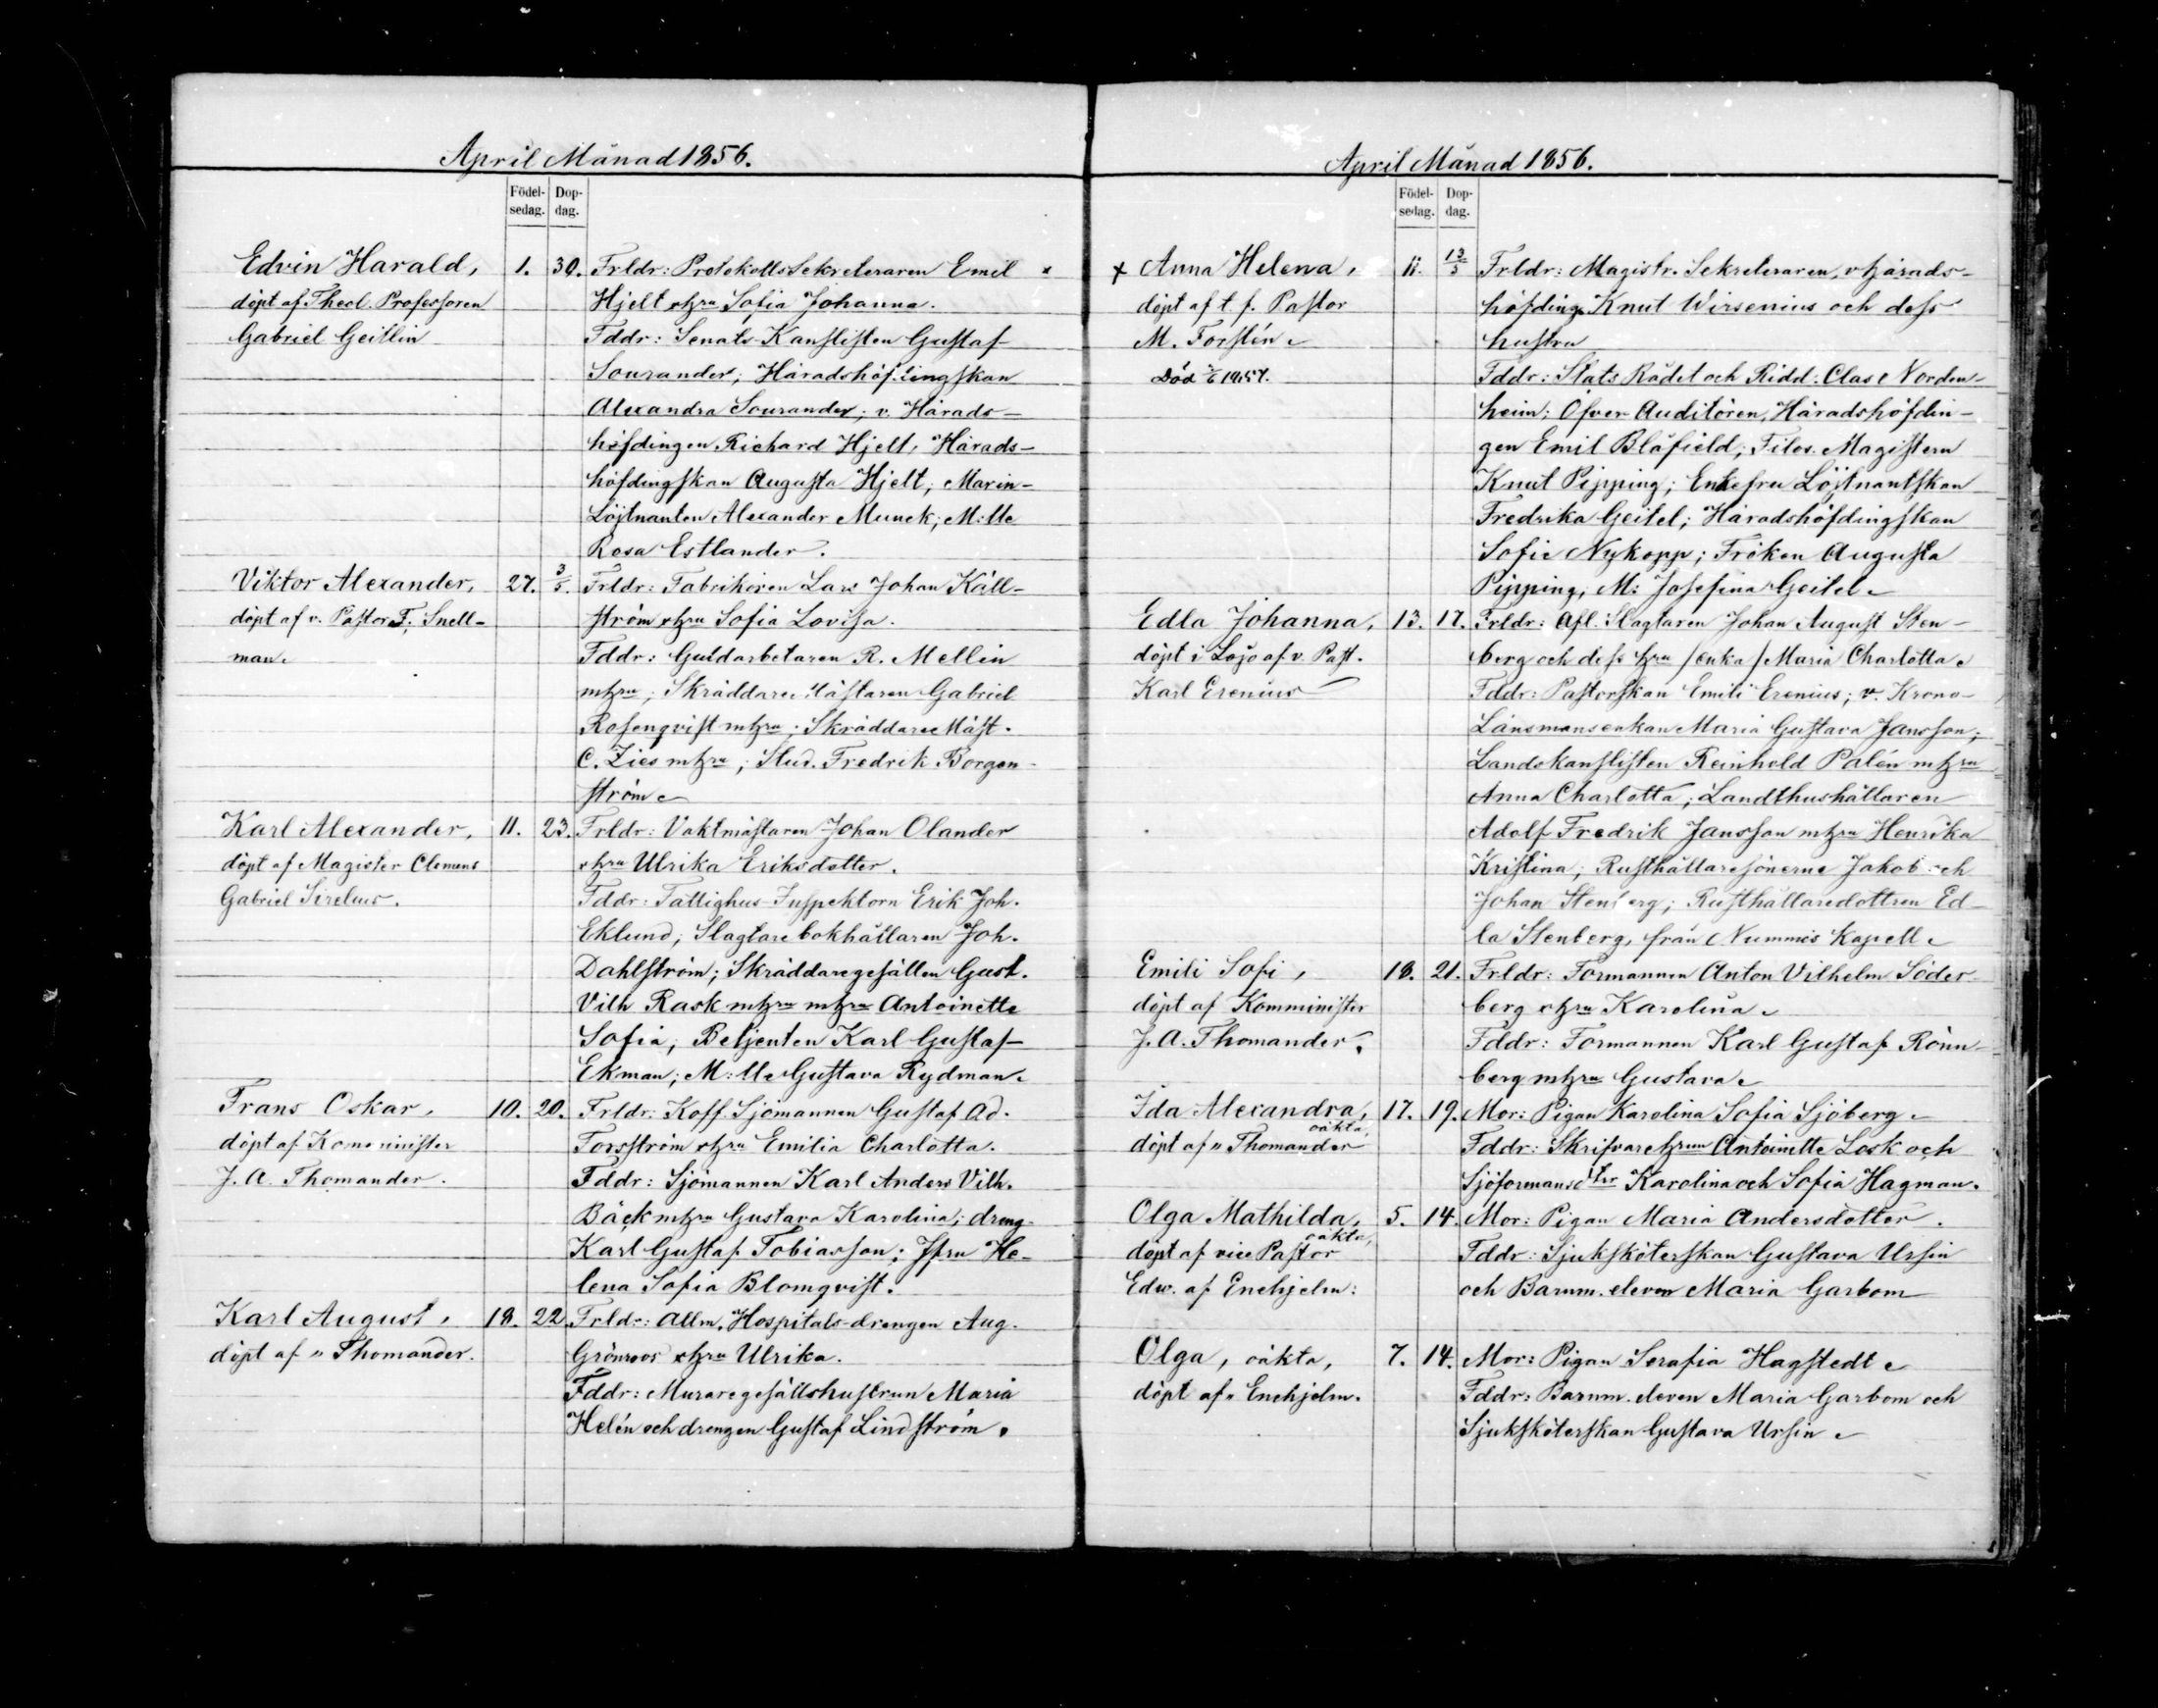 April Månad 1856.
Födel-sedag. Dop-dag.
Edvin Harald, 1. 30. Frldr: Protokolls Sekreteraren Emil
döpt af Theol. Professoren Hjelt o hru Sofia Johanna.
Gabriel Geitlin Fddr: Senats-Kanslisten Gustaf
Sourander; Häradshöfdingskan
Alexandra Sourander; v. Härads-
höfdingen Richard Hjelt, Härads-
höfdingskan Augusta Hjelt; Marin-
Löjtnanten Alexander Munck; M:lle
Rosa Estlander.
Viktor Alexander, 27. 3/5. Frldr: Fabrikören Lars Johan Käll-
döpt af v. Pastor F. Snell- ström o hru Sofia Lovisa.
man. Fddr: Guldarbetaren R. Mellin
m hru; Skräddare Mästaren Gabriel
Rosenqvist m hru; Skräddare Mäst.
C. Zies m hru; Stud. Fredrik Borgen-
ström
Karl Alexander, 11. 23. Frldr: Vaktmästaren Johan Olander
döpt af Magister Clemens o hru Ulrika Eriksdotter.
Gabriel Sirelius. Fddr: Fattighus-Inspektorn Erik Joh.
Eklund; Slagtare bokhållaren Joh.
Dahlström; Skräddaregesällen Gust.
Vilh Rask m hru m hru Antoinette
Sofia; Betjenten Karl Gustaf
Ekman; M:lle Gustava Rydman.
Frans Oskar, 10. 20. Frldr: Koff. Sjömannen Gustaf Ad.
döpt af Komminister Forsström o hru Emilia Charlotta.
J. A. Thomander. Fddr: Sjömannen Karl Anders Vilh.
Bäck m hru Gustava Karolina; dreng.
Karl Gustaf Tobiasson; Jfru He-
lena Sofia Blomqvist.
Karl August, 18. 22. Frldr: Allm. Hospitals-drengen Aug.
döpt af " Thomander. Grönroos o hru Ulrika.
Fddr: Muraregesällshustrun Maria
Helén och drengen Gustaf Lindström.
April Månad 1856.
Födel-sedag. Dop-dag.
+ Anna Helena, 11. 13/5 Frldr: Magistr. Sekreteraren, v härads-
döpt af t. f. Pastor höfding Knut Wirsenius och dess
M. Forstén hustru
Död 1857. Fddr: Stats Rådet och Ridd: Clas Norden-
heim; Öfver Auditören, Häradshöfdin-
gen Emil Blåfield; Filos. Magistern
Knut Pipping; Enkefru Löjtnantskan
Fredrika Geitel; Häradshöfdingskan
Sofie Nykopp; Fröken Augusta
Pipping; M: Josefina Geitel
Edla Johanna, 13. 17. Frldr: Afl. Slagtaren Johan August Sten-
döpt i Lojo af v. Past. berg och dess hru /enka/ Maria Charlotta
Karl Erenius Fddr: Pastorskan Emili Erenius; v. Krono-
Länsmansenkan Maria Gustava Jansson;
Landskanslisten Reinhold Palén m hru
Anna Charlotta; Landthushållaren
Adolf Fredrik Jansson m hru Henrika
Kristina; Rusthållaresönerne Jakob och
Johan Stenberg; Rusthållaredottren Ed-
la Stenberg, från Nummis Kapell
Emili Sofi, 18. 21. Frldr: Formannen Anton Vilhelm Söder-
döpt af Komminister berg o hru Karolina
J. A. Thomander. Fddr: Formannen Karl Gustaf Rönn-
berg m hru Gustava
Ida Alexandra, oäkta, 17. 19. Mor: Pigan Karolina Sofia Sjöberg
döpt af " Thomander Fddr: Skrifvare hrun Antoinette Losk och
Sjöformansdtrr Karolina och Sofia Hagman.
Olga Mathilda, oäkta, 5. 14. Mor: Pigan Maria Andersdotter.
döpt af vice Pastor Fddr: Sjuksköterskan Gustava Ursin
Edw. af Enehjelm: och Barnm. eleven Maria Garbom
Olga, oäkta, 7. 14. Mor: Pigan Serafia Hagstedt
döpt af " Enehjelm. Fddr: Barnm. eleven Maria Garbom och
Sjuksköterskan Gustava Ursin